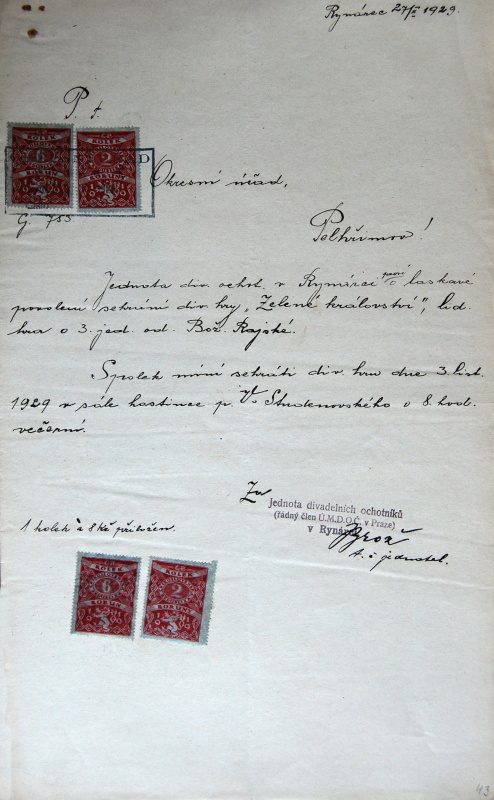 Rynárec 27/X 1929.
P. t.
Č.P.
KOLEK
6
KORUN
1919
Č.P.
KOLEK
2
KORUNY
1919
Okresní úřad,
G. 753
Pelhřimov!
Jednota div. ochot. v Rynárci prosí o laskavé
povolení sehrání div. hry „Zelené království“, lid.
hra o 3. jed. od. Bož. Rajské.
Spolek míní sehráti div. hru dne 3. list.
1929 v sále hostince p. V. Studenovského o 8. hod.
večerní.
Za
jednota divadelních ochotníků
(řádný člen Ú.M.D.O.Č. v Praze)
v Rynárci
Brož
t. č. jednatel.
1 kolek à 8 Kč přiložen.
KOLEK
6
KORUN
KOLEK
2
KORUNY
43